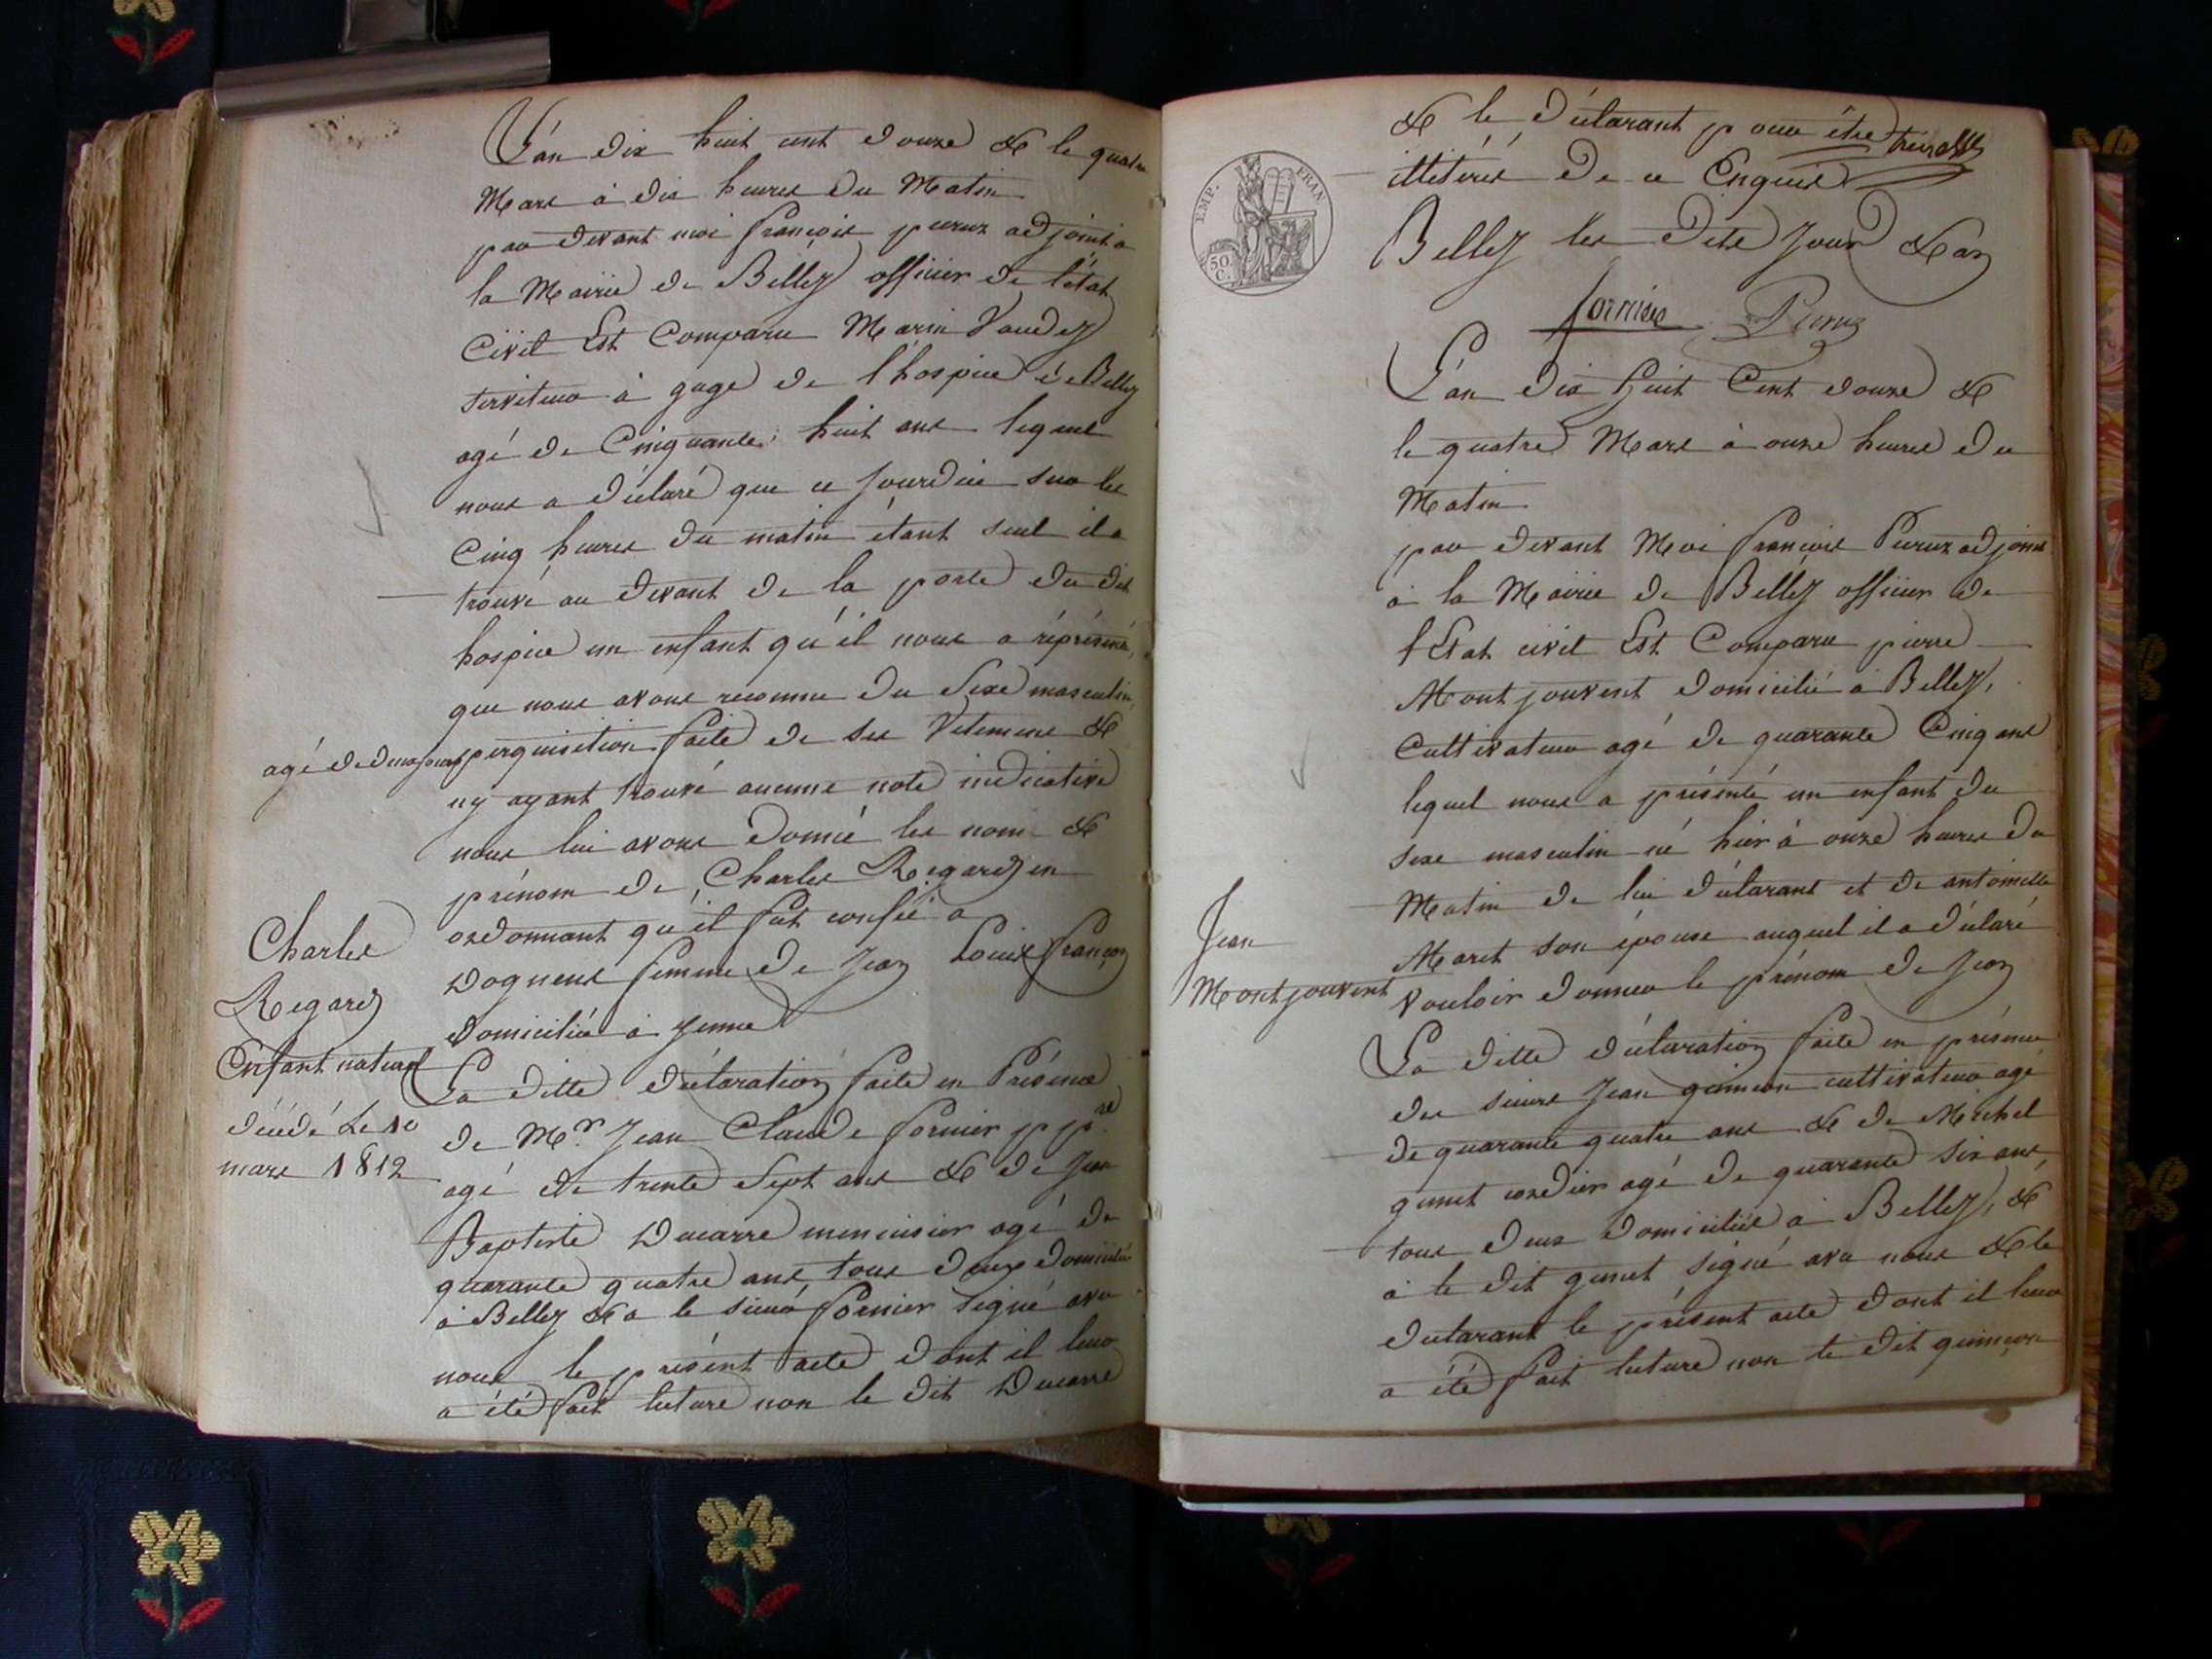 L'an dix huit cent douze & le quatre
Mars à dix heures du Matin
par devant moi françois peruz adjoint a
la Mairie de Belley officier de l'état
Civil Est Comparu Marin Vaudey
serviteur à gage de l'hospice de Belley
agé de Cinquante huit ans lequel
nous a déclaré que ce jourdui sur les
Cinq heures du matin étant seul il a
trouvé au devant de la porte du dit
hospice un enfant qu'il nous a réprésenté,
que nous avons reconnu du sexe masculin,
agé de deux jours perquisition faite de ses Vetemens &
ny ayant trouvé aucune note indicative
nous lui avons donné les nom &
prénom de Charles Regard en
ordonnant qu'il fut confié a
femme de Jean Louis françon
domiciliée à yenne
Charles
Regard
Enfant naturel
décédé Le 10
mars 1812
La ditte déclaration faite en Présence
de Mr. Jean Claude fornier ppre
agé de trente sept ans & de Jean
Baptiste Ducarre menuisier agé de
quarante quatre ans, tous deux domiciliés
à Belley & a le sieur fornier signé avec
nous le présent acte dont il leur
a été fait lecture non le dit Ducarre
& le déclarant pour être
illitérés de ce Enquis
Belley les dits Jour & an
fornier Peruz
EMP. FRAN
50 C.
L'an dix huit Cent douze &
le quatre Mars à onze heures du
Matin
par devant Moi françois Peruz adjoint
à la Mairie de Belley officier de
l'Etat civil Est Comparu pierre
Montjouvent domicilié à Belley,
Cultivateur agé de quarante Cinq ans
lequel nous a présenté un enfant du
sexe masculin né hier à onze heures du
Matin de lui déclarant et de antoinette
Maret son épouse auquel il a déclaré
vouloir donner le prénom de Jean
Jean
Montjouvent
La ditte déclaration faite en présence
des sieurs Jean guinçon cultivateur agé
de quarante quatre ans & de Michel
gunet cordier agé de quarante six ans
tous deux domiciliés à Belley, &
a le dit gunet signé avec nous & le
déclarant le présent acte dont il leur
a été fait lecture non le dit guinçon